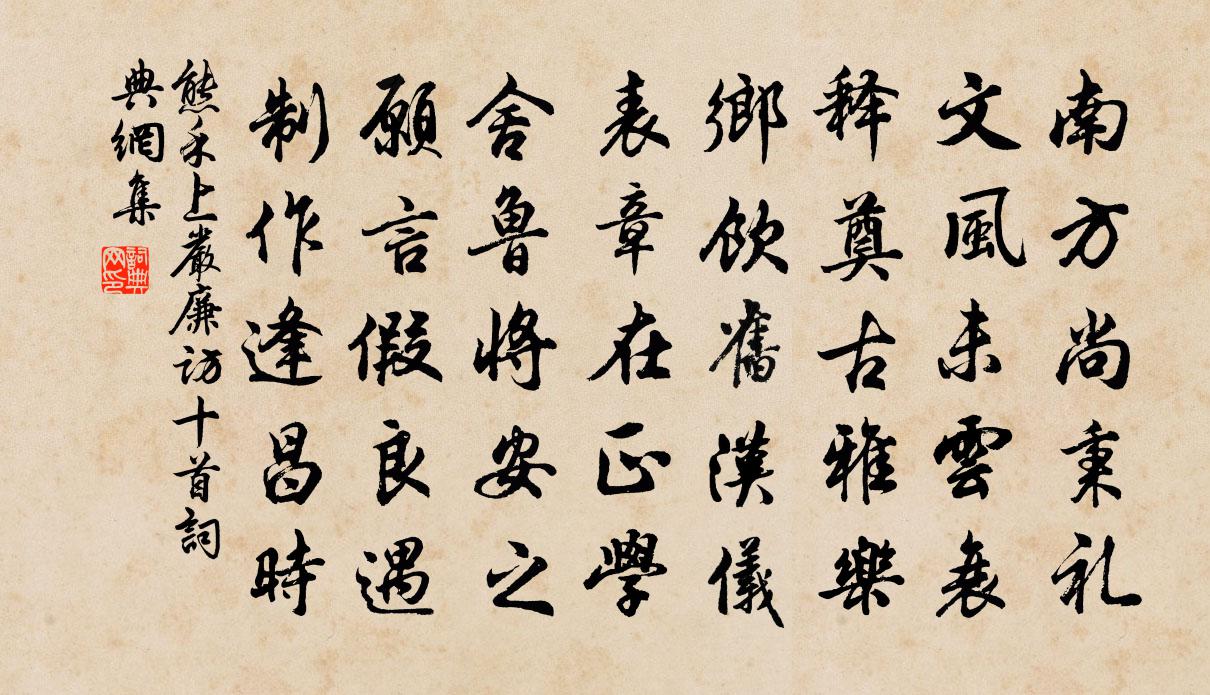 南方尚秉礼
文風未雲衰
釋奠古雅樂
鄉飲舊漢儀
表章在正學
舍魯將安之
願言假良遇
制作逢昌時
熊禾上嚴廉訪十首詞
典網集
詞典網印